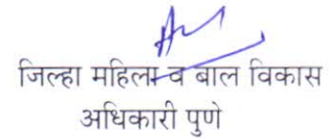 जिल्हा महिला व बाल विकास
अधिकारी पुणे